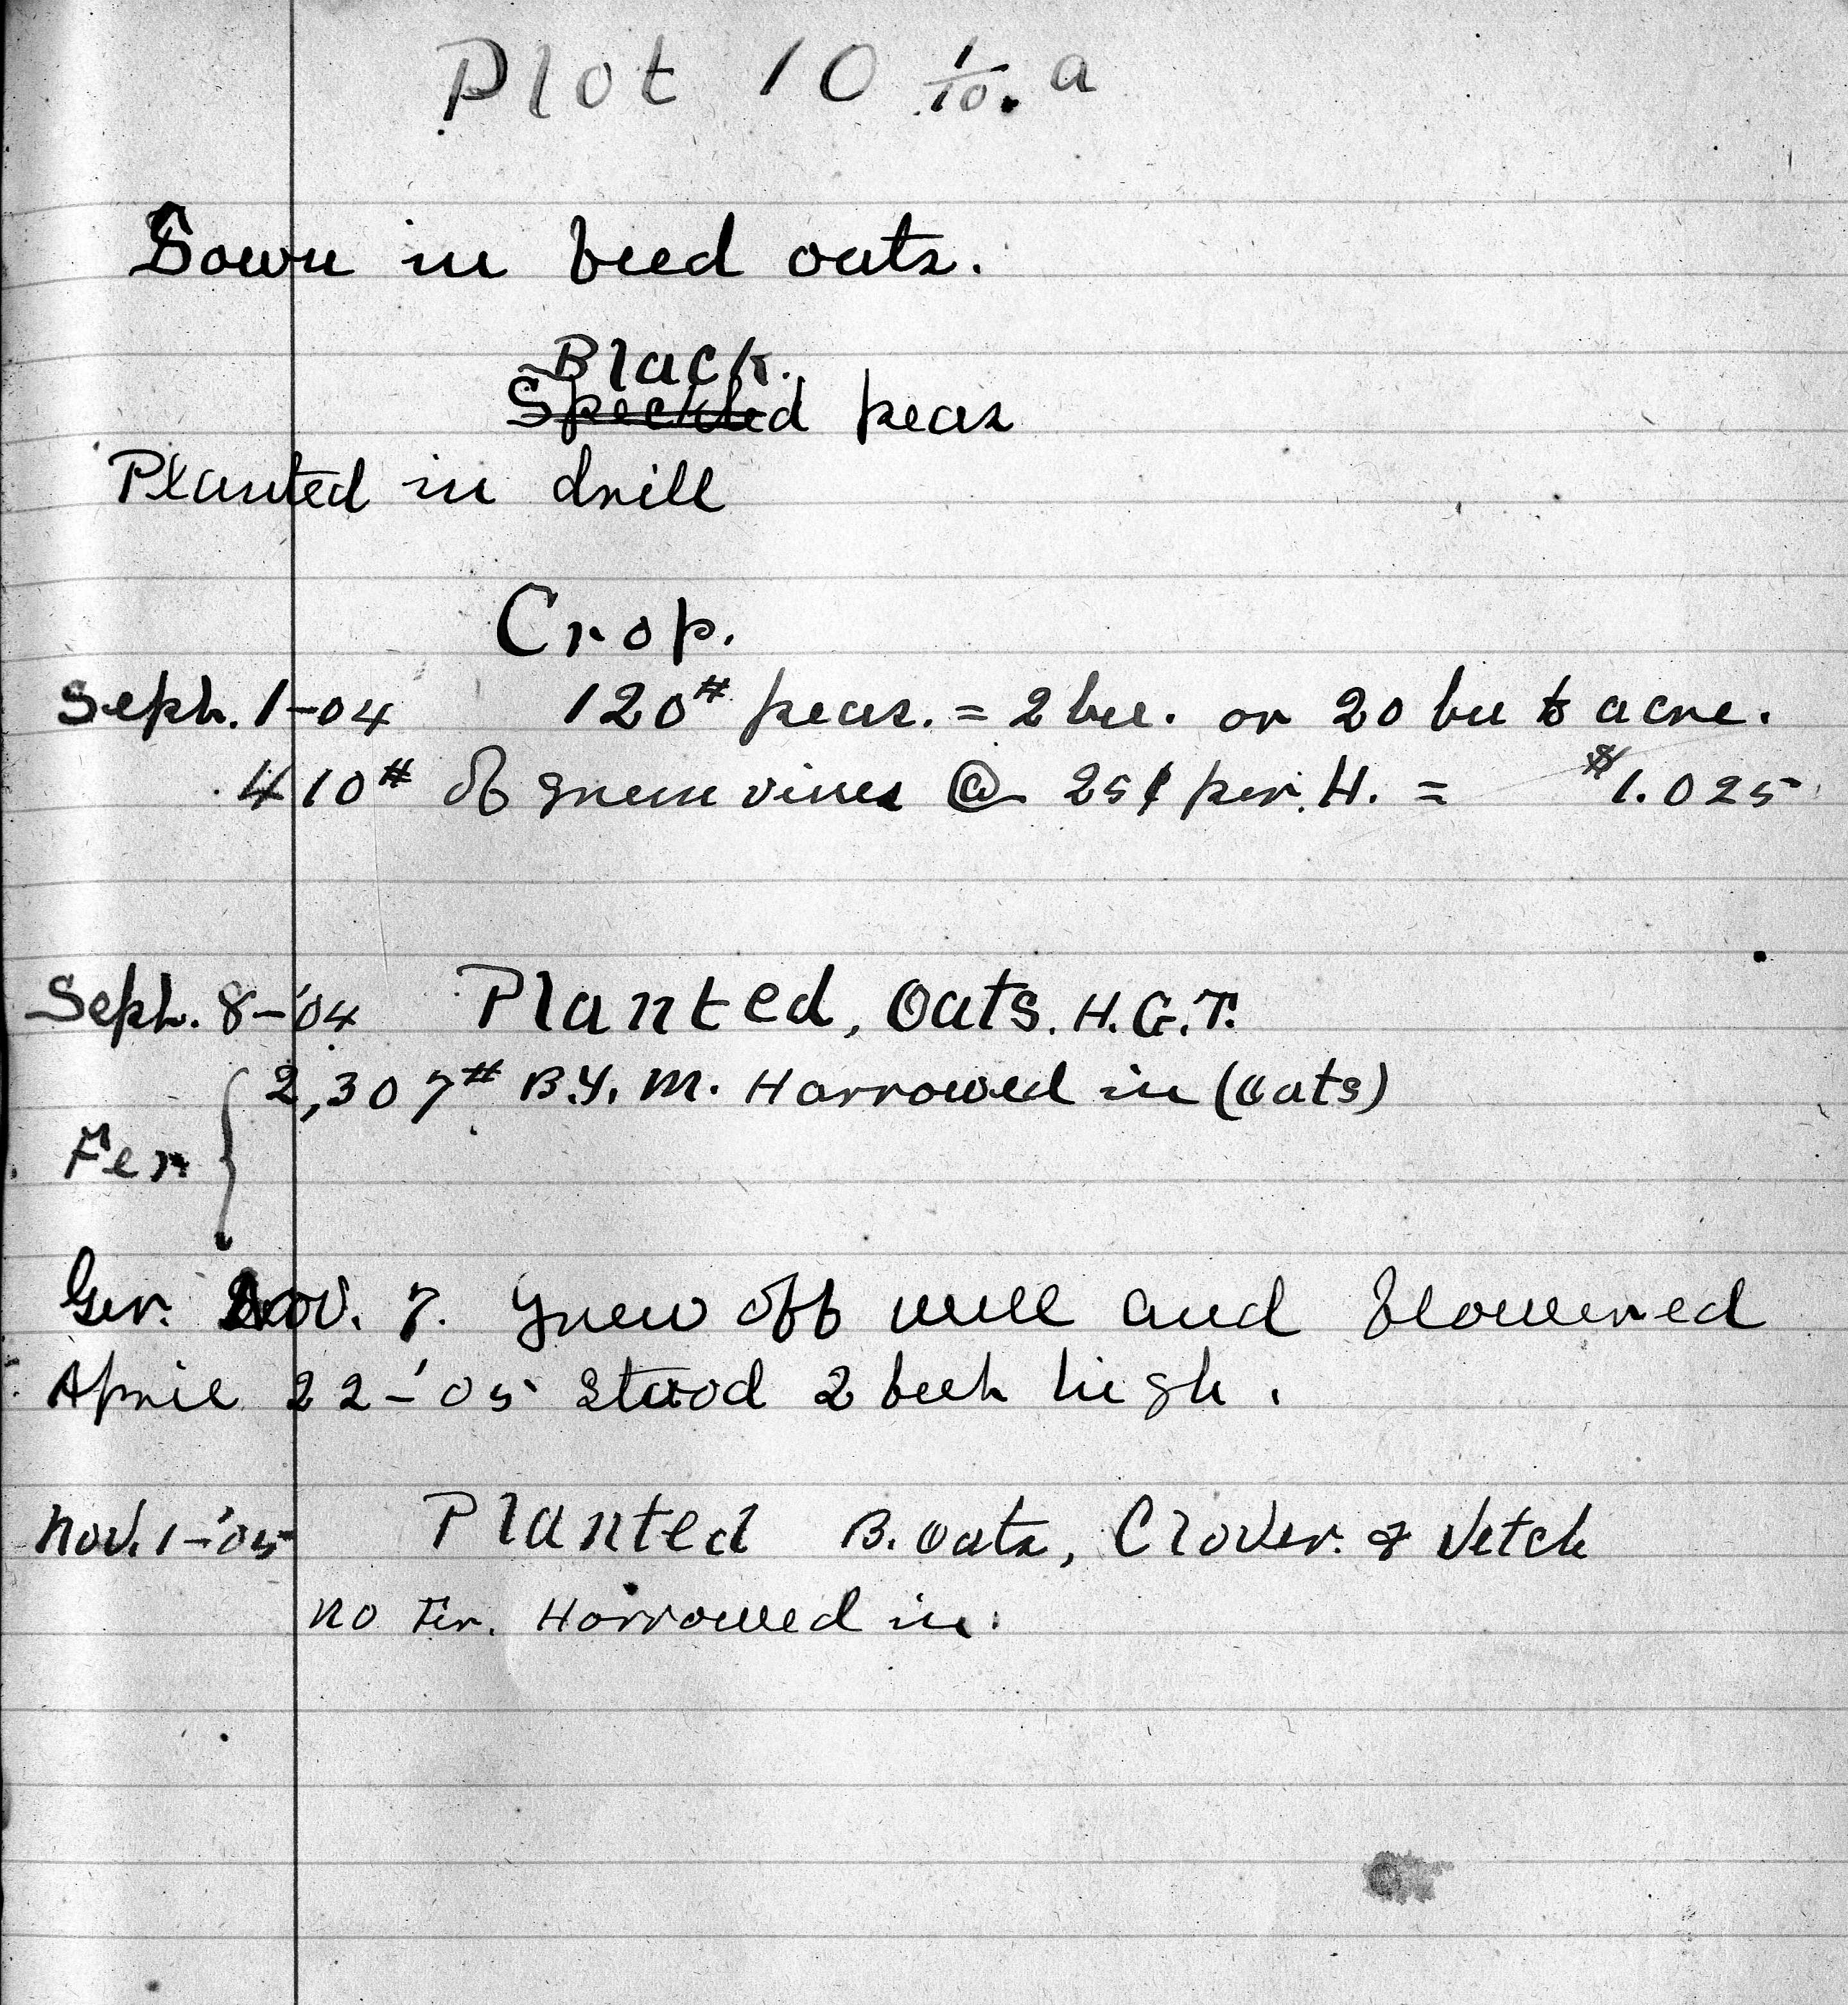 Plot 10 1/10. a
Sown in feed oats.
Black.
Speckled peas
Planted in drill
Crop.
Sept. 1-04 120# peas. = 2 bu. or 20 bu to acre.
410# of green vines @ 25¢ per. H. = $1.025
Sept. 8-'04 Planted, Oats. H.G.T.
2,307# B.Y.M. Harrowed in (Oats)
Fer
Ger. Nov. 7. Grew off well and flowered
April 22-'05 Stood 2 feet high.
Nov. 1-'05 Planted B. Oats, Clover. & Vetch
No Fer. Harrowed in.